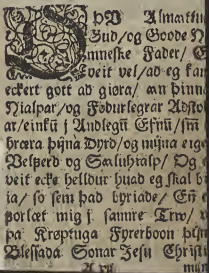 ÞU Almætt
Gud/og Goode H
mneske Fader/ E
veit vel/ad eg kan
eckert gott ad giøra/ an þinn
Hialpar/og Fødurlegrar Adsto
ar/einkū j Andlegū Efnū/sm
hræra þijna Dyrd/og mijna eige
Velferd og Sæluhialp/ Og
veit ecke helldur huad eg skal b
ia/ so sem þad byriade/ En
þorlæt mig j sannre Trw/ v
pa Krøptuga Fyrerboon þijn
Blessada Sonar Jesu Christi